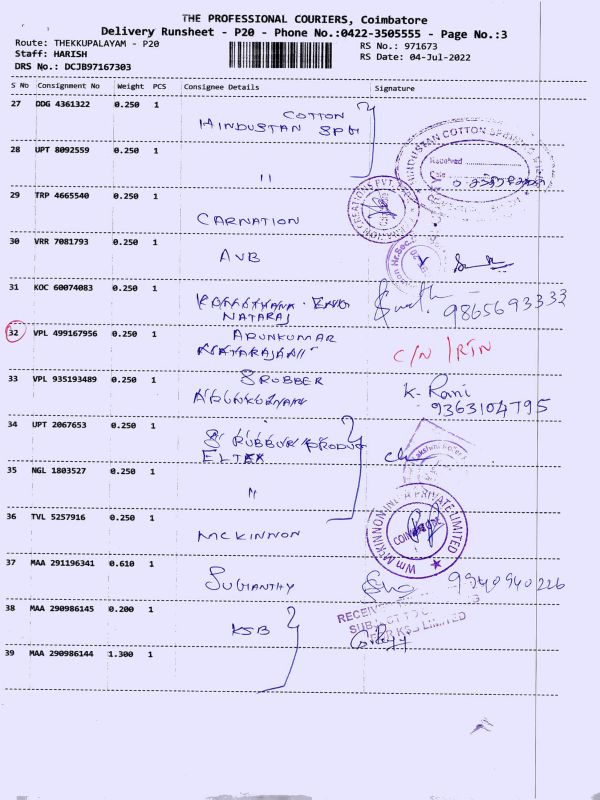 THE PROFESSIONAL COURIERS, Coimbatore
Delivery Runsheet - P20 - Phone No.:0422-3505555 - Page No.:3
Route: THEKKUPALAYAM - P20
Staff: HARISH
DRS No.: DCJB97167303
RS No.: 971673
RS Date: 04-Jul-2022
S No Consignment No Weight PCS Consignee Details Signature
27 DDG 4361322 0.250 1
COTTON
HINDUSTAN SPG
28 UPT 8092559 0.250 1
"
HINDUSTAN COTTON
Received
Date
29 TRP 4665540 0.250 1
CARNATION
CREATIONS PVT.
30 VRR 7081793 0.250 1
AVB
31 KOC 60074083 0.250 1
NATARAJ
9865693333
32 VPL 499167956 0.250 1
ARUNKUMAR
C/N /RTN
33 VPL 935193489 0.250 1
S RUBBER
K. Rani
9363104795
34 UPT 2067653 0.250 1
S RUBBUR PRODUC
ELTEX
35 NGL 1803527 0.250 1
"
36 TVL 5257916 0.250 1
MCKINNON
Wm MCKINNON INDIA PRIVATE LIMITED
COIMBATORE
37 MAA 291196341 0.610 1
SUGANTHY
9940940226
38 MAA 290986145 0.200 1
KSB
RECEIVED
SUBJECT TO
FOR KSB LIMITED
39 MAA 290986144 1.300 1